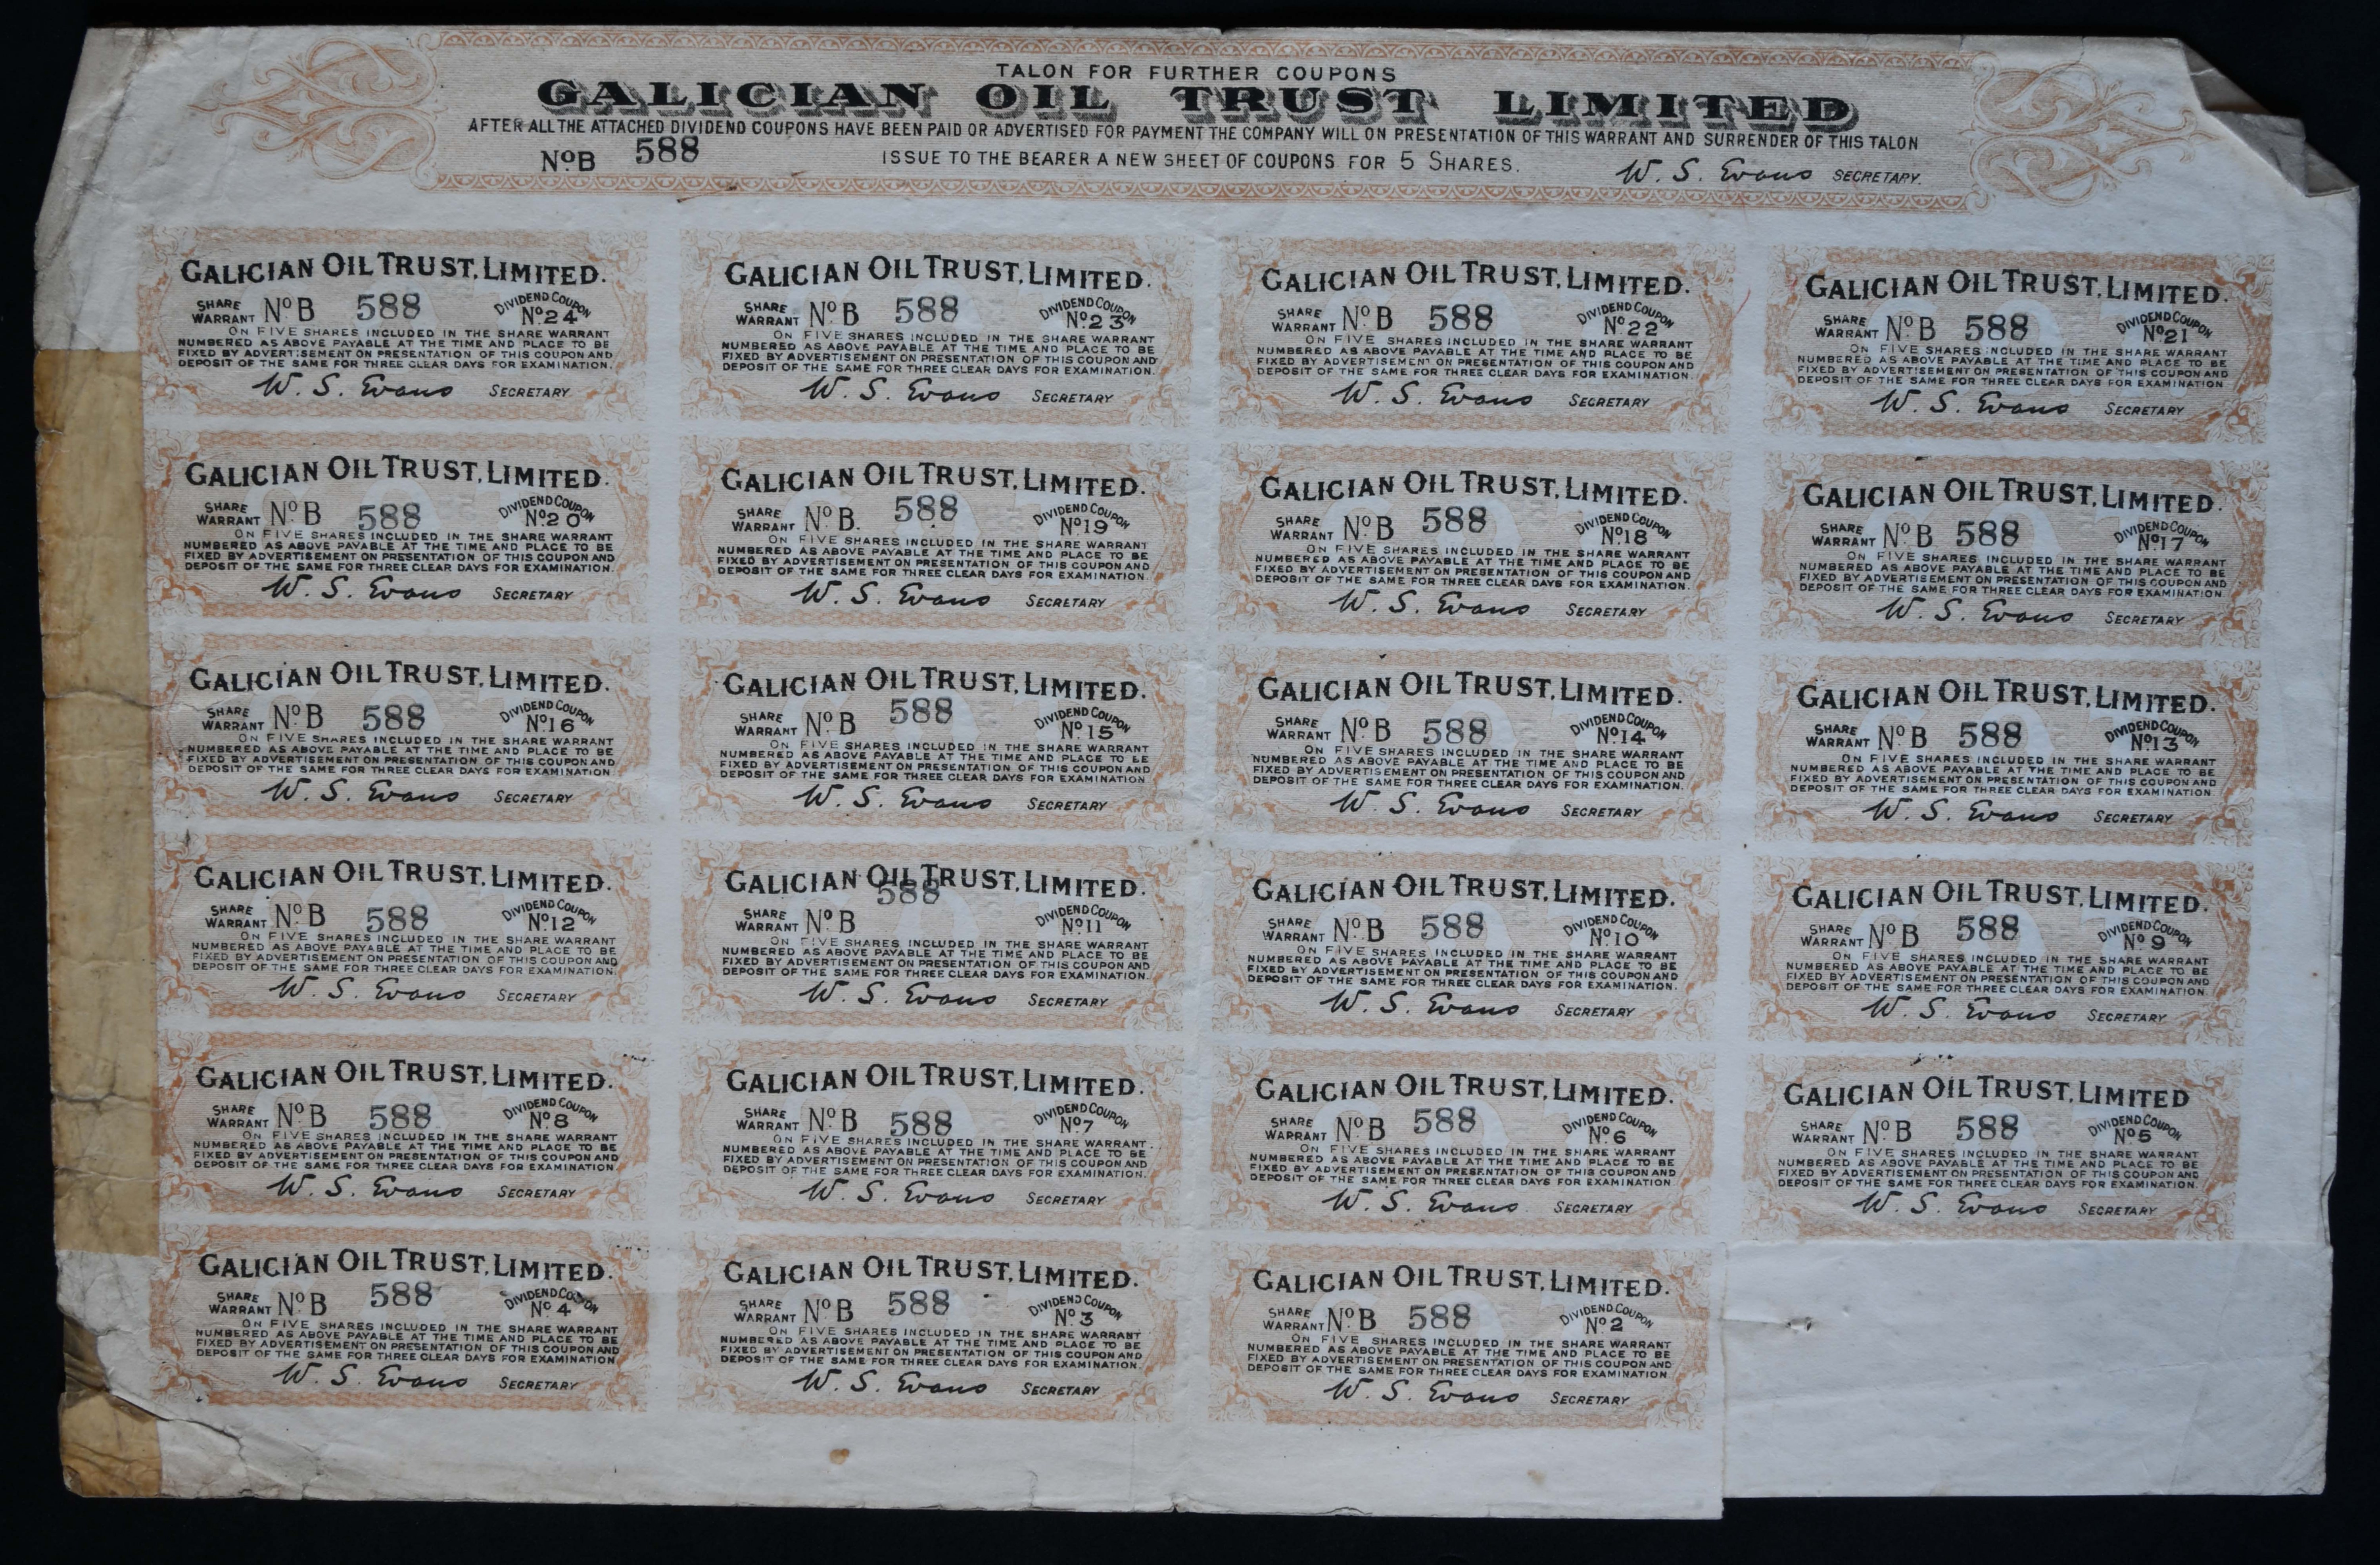 TALON FOR FURTHER COUPONS
GALICIAN OIL TRUST LIMITED
AFTER ALL THE ATTACHED DIVIDEND COUPONS HAVE BEEN PAID OR ADVERTISED FOR PAYMENT THE COMPANY WILL ON PRESENTATION OF THIS WARRANT AND SURRENDER OF THIS TALON
Nº B 588 ISSUE TO THE BEARER A NEW SHEET OF COUPONS FOR 5 SHARES.
W. S. Evans SECRETARY.
GALICIAN OIL TRUST, LIMITED.
SHARE WARRANT Nº B 588 DIVIDEND COUPON Nº 24
ON FIVE SHARES INCLUDED IN THE SHARE WARRANT
NUMBERED AS ABOVE PAYABLE AT THE TIME AND PLACE TO BE
FIXED BY ADVERTISEMENT ON PRESENTATION OF THIS COUPON AND
DEPOSIT OF THE SAME FOR THREE CLEAR DAYS FOR EXAMINATION.
W. S. Evans SECRETARY
GALICIAN OIL TRUST, LIMITED.
SHARE WARRANT Nº B 588 DIVIDEND COUPON Nº 23
ON FIVE SHARES INCLUDED IN THE SHARE WARRANT
NUMBERED AS ABOVE PAYABLE AT THE TIME AND PLACE TO BE
FIXED BY ADVERTISEMENT ON PRESENTATION OF THIS COUPON AND
DEPOSIT OF THE SAME FOR THREE CLEAR DAYS FOR EXAMINATION.
W. S. Evans SECRETARY
GALICIAN OIL TRUST, LIMITED.
SHARE WARRANT Nº B 588 DIVIDEND COUPON Nº 22
ON FIVE SHARES INCLUDED IN THE SHARE WARRANT
NUMBERED AS ABOVE PAYABLE AT THE TIME AND PLACE TO BE
FIXED BY ADVERTISEMENT ON PRESENTATION OF THIS COUPON AND
DEPOSIT OF THE SAME FOR THREE CLEAR DAYS FOR EXAMINATION.
W. S. Evans SECRETARY
GALICIAN OIL TRUST, LIMITED.
SHARE WARRANT Nº B 588 DIVIDEND COUPON Nº 21
ON FIVE SHARES INCLUDED IN THE SHARE WARRANT
NUMBERED AS ABOVE PAYABLE AT THE TIME AND PLACE TO BE
FIXED BY ADVERTISEMENT ON PRESENTATION OF THIS COUPON AND
DEPOSIT OF THE SAME FOR THREE CLEAR DAYS FOR EXAMINATION
W. S. Evans SECRETARY
GALICIAN OIL TRUST, LIMITED.
SHARE WARRANT Nº B 588 DIVIDEND COUPON Nº 20
ON FIVE SHARES INCLUDED IN THE SHARE WARRANT
NUMBERED AS ABOVE PAYABLE AT THE TIME AND PLACE TO BE
FIXED BY ADVERTISEMENT ON PRESENTATION OF THIS COUPON AND
DEPOSIT OF THE SAME FOR THREE CLEAR DAYS FOR EXAMINATION.
W. S. Evans SECRETARY
GALICIAN OIL TRUST, LIMITED.
SHARE WARRANT Nº B. 588 DIVIDEND COUPON Nº 19
ON FIVE SHARES INCLUDED IN THE SHARE WARRANT
NUMBERED AS ABOVE PAYABLE AT THE TIME AND PLACE TO BE
FIXED BY ADVERTISEMENT ON PRESENTATION OF THIS COUPON AND
DEPOSIT OF THE SAME FOR THREE CLEAR DAYS FOR EXAMINATION.
W. S. Evans SECRETARY
GALICIAN OIL TRUST, LIMITED.
SHARE WARRANT Nº B 588 DIVIDEND COUPON Nº 18
ON FIVE SHARES INCLUDED IN THE SHARE WARRANT
NUMBERED AS ABOVE PAYABLE AT THE TIME AND PLACE TO BE
FIXED BY ADVERTISEMENT ON PRESENTATION OF THIS COUPON AND
DEPOSIT OF THE SAME FOR THREE CLEAR DAYS FOR EXAMINATION.
W. S. Evans SECRETARY
GALICIAN OIL TRUST, LIMITED.
SHARE WARRANT Nº B 588 DIVIDEND COUPON Nº 17
ON FIVE SHARES INCLUDED IN THE SHARE WARRANT
NUMBERED AS ABOVE PAYABLE AT THE TIME AND PLACE TO BE
FIXED BY ADVERTISEMENT ON PRESENTATION OF THIS COUPON AND
DEPOSIT OF THE SAME FOR THREE CLEAR DAYS FOR EXAMINATION.
W. S. Evans SECRETARY
GALICIAN OIL TRUST, LIMITED.
SHARE WARRANT Nº B 588 DIVIDEND COUPON Nº 16
ON FIVE SHARES INCLUDED IN THE SHARE WARRANT
NUMBERED AS ABOVE PAYABLE AT THE TIME AND PLACE TO BE
FIXED BY ADVERTISEMENT ON PRESENTATION OF THIS COUPON AND
DEPOSIT OF THE SAME FOR THREE CLEAR DAYS FOR EXAMINATION
W. S. Evans SECRETARY
GALICIAN OIL TRUST, LIMITED.
SHARE WARRANT Nº B 588 DIVIDEND COUPON Nº 15
ON FIVE SHARES INCLUDED IN THE SHARE WARRANT
NUMBERED AS ABOVE PAYABLE AT THE TIME AND PLACE TO BE
FIXED BY ADVERTISEMENT ON PRESENTATION OF THIS COUPON AND
DEPOSIT OF THE SAME FOR THREE CLEAR DAYS FOR EXAMINATION
W. S. Evans SECRETARY
GALICIAN OIL TRUST, LIMITED.
SHARE WARRANT Nº B 588 DIVIDEND COUPON Nº 14
ON FIVE SHARES INCLUDED IN THE SHARE WARRANT
NUMBERED AS ABOVE PAYABLE AT THE TIME AND PLACE TO BE
FIXED BY ADVERTISEMENT ON PRESENTATION OF THIS COUPON AND
DEPOSIT OF THE SAME FOR THREE CLEAR DAYS FOR EXAMINATION.
W. S. Evans SECRETARY
GALICIAN OIL TRUST, LIMITED.
SHARE WARRANT Nº B 588 DIVIDEND COUPON Nº 13
ON FIVE SHARES INCLUDED IN THE SHARE WARRANT
NUMBERED AS ABOVE PAYABLE AT THE TIME AND PLACE TO BE
FIXED BY ADVERTISEMENT ON PRESENTATION OF THIS COUPON AND
DEPOSIT OF THE SAME FOR THREE CLEAR DAYS FOR EXAMINATION
W. S. Evans SECRETARY
GALICIAN OIL TRUST, LIMITED.
SHARE WARRANT Nº B 588 DIVIDEND COUPON Nº 12
ON FIVE SHARES INCLUDED IN THE SHARE WARRANT
NUMBERED AS ABOVE PAYABLE AT THE TIME AND PLACE TO BE
FIXED BY ADVERTISEMENT ON PRESENTATION OF THIS COUPON AND
DEPOSIT OF THE SAME FOR THREE CLEAR DAYS FOR EXAMINATION.
W. S. Evans SECRETARY
GALICIAN OIL TRUST, LIMITED.
SHARE WARRANT Nº B 588 DIVIDEND COUPON Nº 11
ON FIVE SHARES INCLUDED IN THE SHARE WARRANT
NUMBERED AS ABOVE PAYABLE AT THE TIME AND PLACE TO BE
FIXED BY ADVERTISEMENT ON PRESENTATION OF THIS COUPON AND
DEPOSIT OF THE SAME FOR THREE CLEAR DAYS FOR EXAMINATION.
W. S. Evans SECRETARY
GALICIAN OIL TRUST, LIMITED.
SHARE WARRANT Nº B 588 DIVIDEND COUPON Nº 10
ON FIVE SHARES INCLUDED IN THE SHARE WARRANT
NUMBERED AS ABOVE PAYABLE AT THE TIME AND PLACE TO BE
FIXED BY ADVERTISEMENT ON PRESENTATION OF THIS COUPON AND
DEPOSIT OF THE SAME FOR THREE CLEAR DAYS FOR EXAMINATION.
W. S. Evans SECRETARY
GALICIAN OIL TRUST, LIMITED.
SHARE WARRANT Nº B 588 DIVIDEND COUPON Nº 9
ON FIVE SHARES INCLUDED IN THE SHARE WARRANT
NUMBERED AS ABOVE PAYABLE AT THE TIME AND PLACE TO BE
FIXED BY ADVERTISEMENT ON PRESENTATION OF THIS COUPON AND
DEPOSIT OF THE SAME FOR THREE CLEAR DAYS FOR EXAMINATION.
W. S. Evans SECRETARY
GALICIAN OIL TRUST, LIMITED.
SHARE WARRANT Nº B 588 DIVIDEND COUPON Nº 8
ON FIVE SHARES INCLUDED IN THE SHARE WARRANT
NUMBERED AS ABOVE PAYABLE AT THE TIME AND PLACE TO BE
FIXED BY ADVERTISEMENT ON PRESENTATION OF THIS COUPON AND
DEPOSIT OF THE SAME FOR THREE CLEAR DAYS FOR EXAMINATION
W. S. Evans SECRETARY
GALICIAN OIL TRUST, LIMITED.
SHARE WARRANT Nº B 588 DIVIDEND COUPON Nº 7
ON FIVE SHARES INCLUDED IN THE SHARE WARRANT
NUMBERED AS ABOVE PAYABLE AT THE TIME AND PLACE TO BE
FIXED BY ADVERTISEMENT ON PRESENTATION OF THIS COUPON AND
DEPOSIT OF THE SAME FOR THREE CLEAR DAYS FOR EXAMINATION.
W. S. Evans SECRETARY
GALICIAN OIL TRUST, LIMITED.
SHARE WARRANT Nº B 588 DIVIDEND COUPON Nº 6
ON FIVE SHARES INCLUDED IN THE SHARE WARRANT
NUMBERED AS ABOVE PAYABLE AT THE TIME AND PLACE TO BE
FIXED BY ADVERTISEMENT ON PRESENTATION OF THIS COUPON AND
DEPOSIT OF THE SAME FOR THREE CLEAR DAYS FOR EXAMINATION.
W. S. Evans SECRETARY
GALICIAN OIL TRUST, LIMITED
SHARE WARRANT Nº B 588 DIVIDEND COUPON Nº 5
ON FIVE SHARES INCLUDED IN THE SHARE WARRANT
NUMBERED AS ABOVE PAYABLE AT THE TIME AND PLACE TO BE
FIXED BY ADVERTISEMENT ON PRESENTATION OF THIS COUPON AND
DEPOSIT OF THE SAME FOR THREE CLEAR DAYS FOR EXAMINATION.
W. S. Evans SECRETARY
GALICIAN OIL TRUST, LIMITED.
SHARE WARRANT Nº B 588 DIVIDEND COUPON Nº 4
ON FIVE SHARES INCLUDED IN THE SHARE WARRANT
NUMBERED AS ABOVE PAYABLE AT THE TIME AND PLACE TO BE
FIXED BY ADVERTISEMENT ON PRESENTATION OF THIS COUPON AND
DEPOSIT OF THE SAME FOR THREE CLEAR DAYS FOR EXAMINATION
W. S. Evans SECRETARY
GALICIAN OIL TRUST, LIMITED.
SHARE WARRANT Nº B 588 DIVIDEND COUPON Nº 3
ON FIVE SHARES INCLUDED IN THE SHARE WARRANT
NUMBERED AS ABOVE PAYABLE AT THE TIME AND PLACE TO BE
FIXED BY ADVERTISEMENT ON PRESENTATION OF THIS COUPON AND
DEPOSIT OF THE SAME FOR THREE CLEAR DAYS FOR EXAMINATION.
W. S. Evans SECRETARY
GALICIAN OIL TRUST, LIMITED.
SHARE WARRANT Nº B 588 DIVIDEND COUPON Nº 2
ON FIVE SHARES INCLUDED IN THE SHARE WARRANT
NUMBERED AS ABOVE PAYABLE AT THE TIME AND PLACE TO BE
FIXED BY ADVERTISEMENT ON PRESENTATION OF THIS COUPON AND
DEPOSIT OF THE SAME FOR THREE CLEAR DAYS FOR EXAMINATION.
W. S. Evans SECRETARY